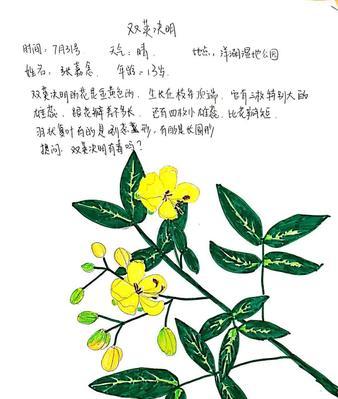 双荚决明
时间：7月31号 天气：晴 地点：洋湖湿地公园
姓名：张嘉念 年龄：13岁
双荚决明的花是金黄色的，生长在枝条顶端，它有三枚特别大的
雄蕊，跟花瓣差不多长，还有四枚小雄蕊，比花瓣短，
羽状复叶有的是倒卵形，有的是长圆形
提问：双荚决明有毒吗？